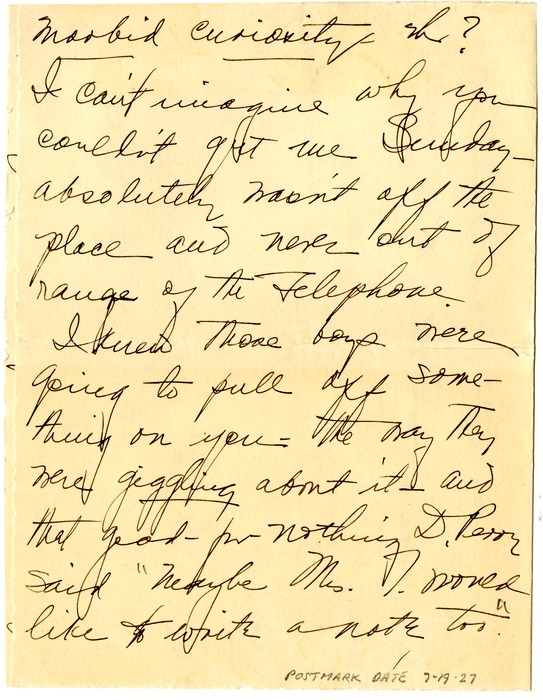 Morbid curiosity - eh?
I can't imagine why you
couldn't get me Sunday -
absolutely wasn't off the
place and never out of
range of the Telephone
I knew those boys were
going to pull off some-
thing on you - the way they
were giggling about it - and
that good-for nothing D. Perry
said "Maybe Mrs. T. would
like to write a note too."
POSTMARK DATE 7-19-27